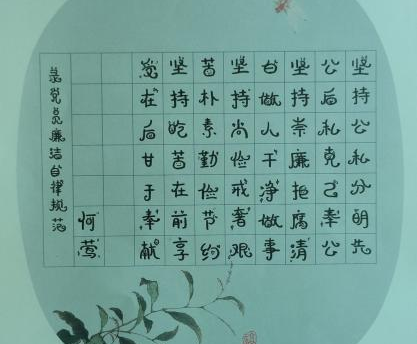 坚持公私分明先
公后私克己奉公
坚持崇廉拒腐清
白做人干净做事
坚持尚俭戒奢艰
苦朴素勤俭节约
坚持吃苦在前享
受在后甘于奉献
莺
党员廉洁自律规范